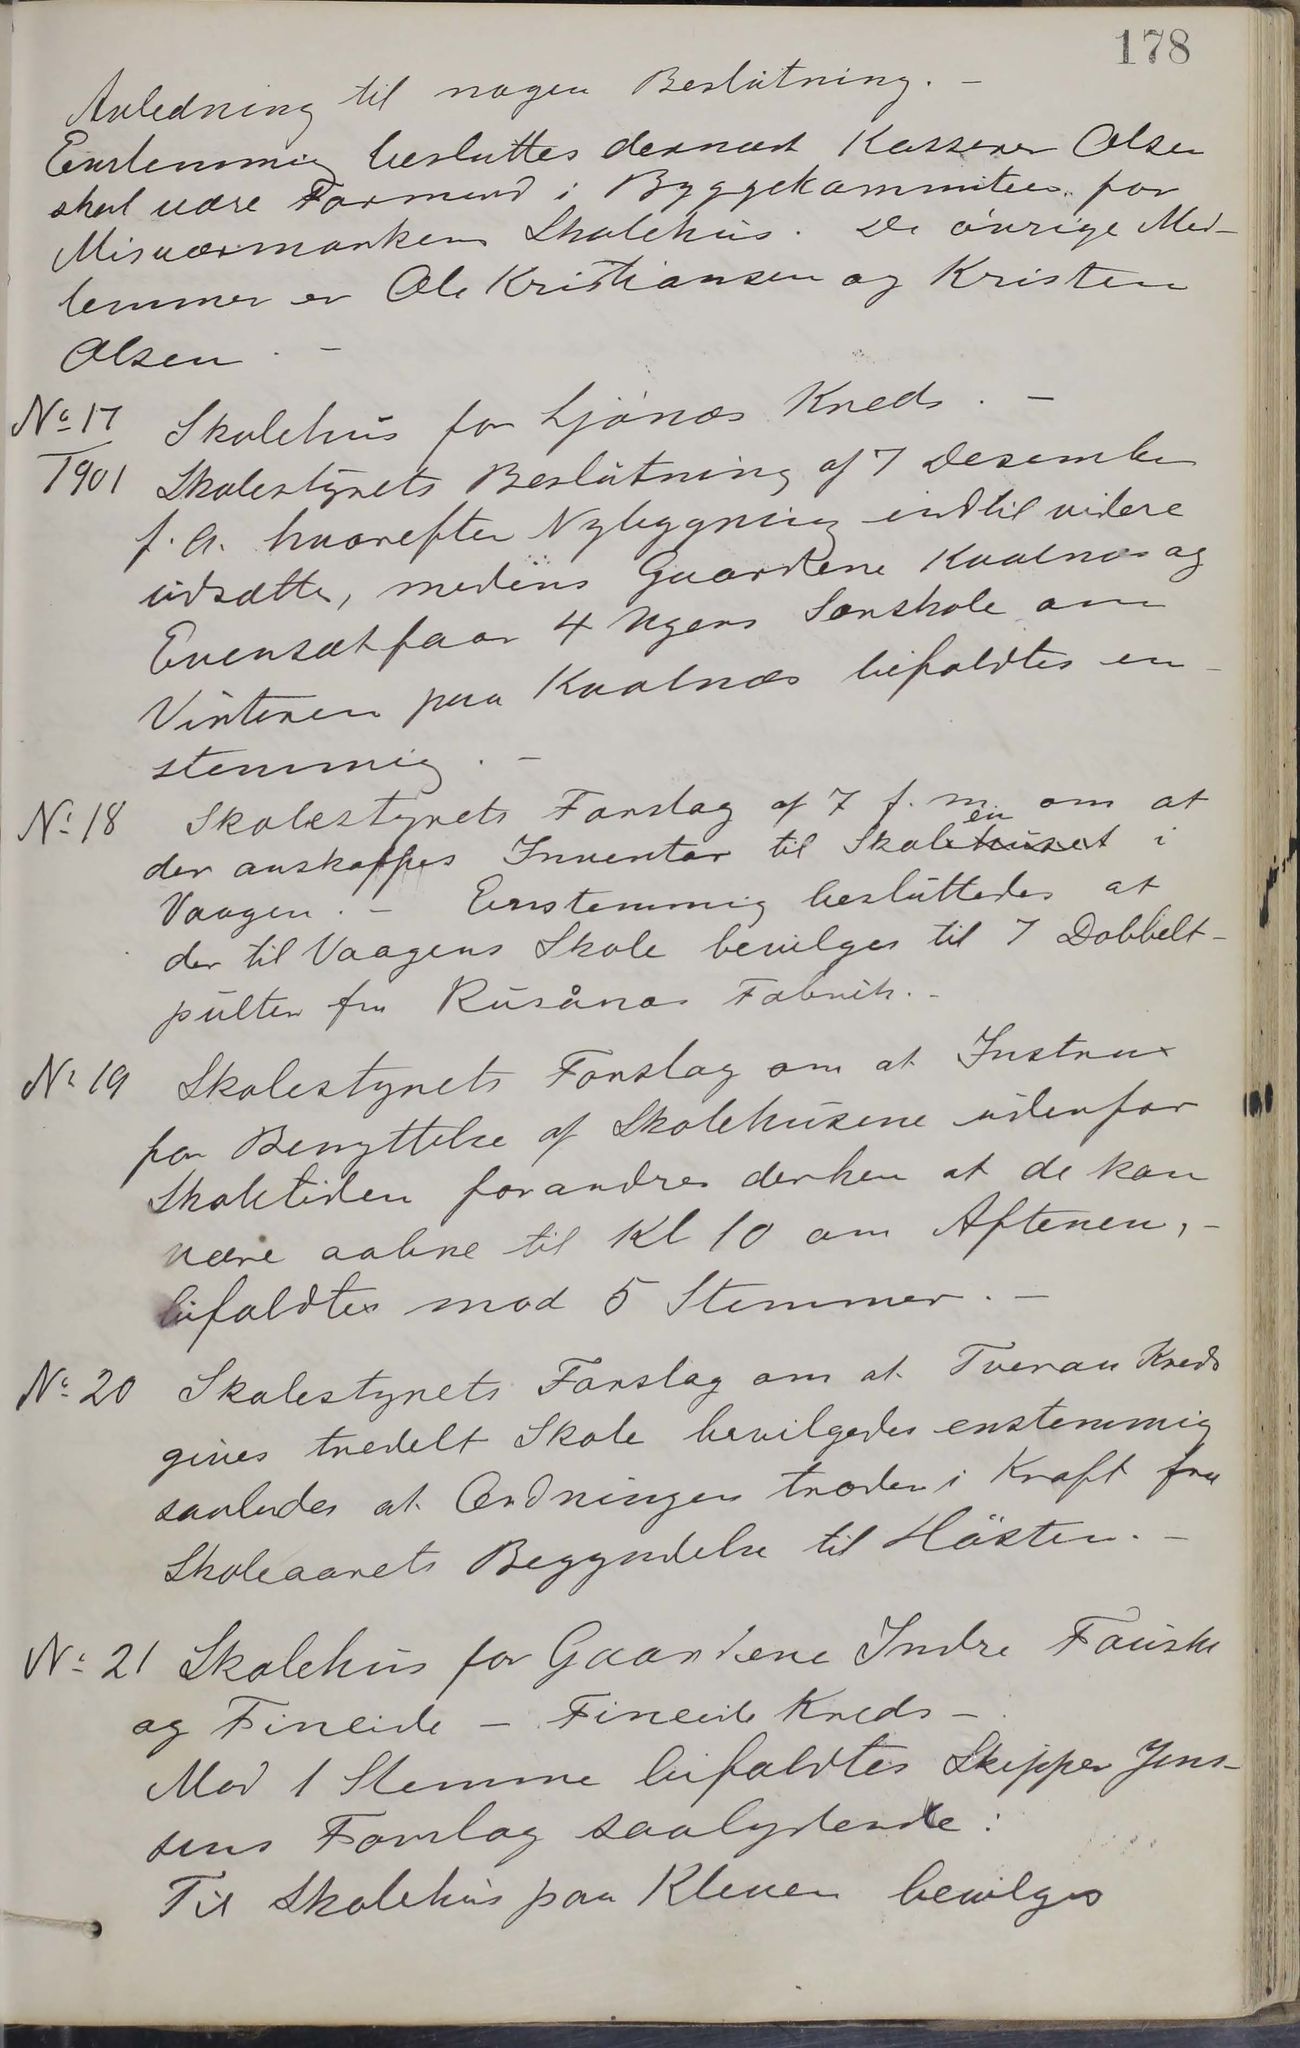 178
Anledning til nogen Beslutning. -
Enstemmig besluttes dernæst Kasserer Olsen
skal være Formand i Byggekommiteen for
Misværmarken Skolehus. De øvrige Med-
lemmer er Ole Kristiansen og Kristen
Olsen. -
No 17 Skolehus for Ljønes Kreds. -
1901 Skolestyrets Beslutning af 7 Desember
f. A. hvorefter Nybygning indtil videre
udsættes, medens Gaardene Kvalnæs og
Evensæt faar 4 Ugers Særskole om
Vinteren paa Kvalnæs bifaldtes en-
stemmig. -
No 18 Skolestyrets Forslag af 7 f. m. om at
der anskaffes Inventar til Skolehuset en i
Vaagen. - Enstemmig besluttedes at
der til Vaagens Skole bevilges til 7 Dobbelt-
pulter fra Rusånes Fabrik. -
No 19 Skolestyrets Forslag om at Instrux
for Benyttelse af Skolehusene udenfor
Skoletiden forandres derhen at de kan
være aabne til Kl 10 om Aftenen, -
bifaldtes mod 5 Stemmer. -
No 20 Skolestyrets Forslag om at Tveraa Kreds
gives tredelt Skole bevilgedes enstemmig
saaledes at Ordningen træder i Kraft fra
Skoleaarets Begyndelse til Høsten. -
No 21 Skolehus for Gaardene Indre Fauske
og Fineide - Fineide Kreds -
Mod 1 Stemme bifaldtes Skipper Jens-
sens Forslag saalydende:
Til Skolehus paa Kleven bevilges